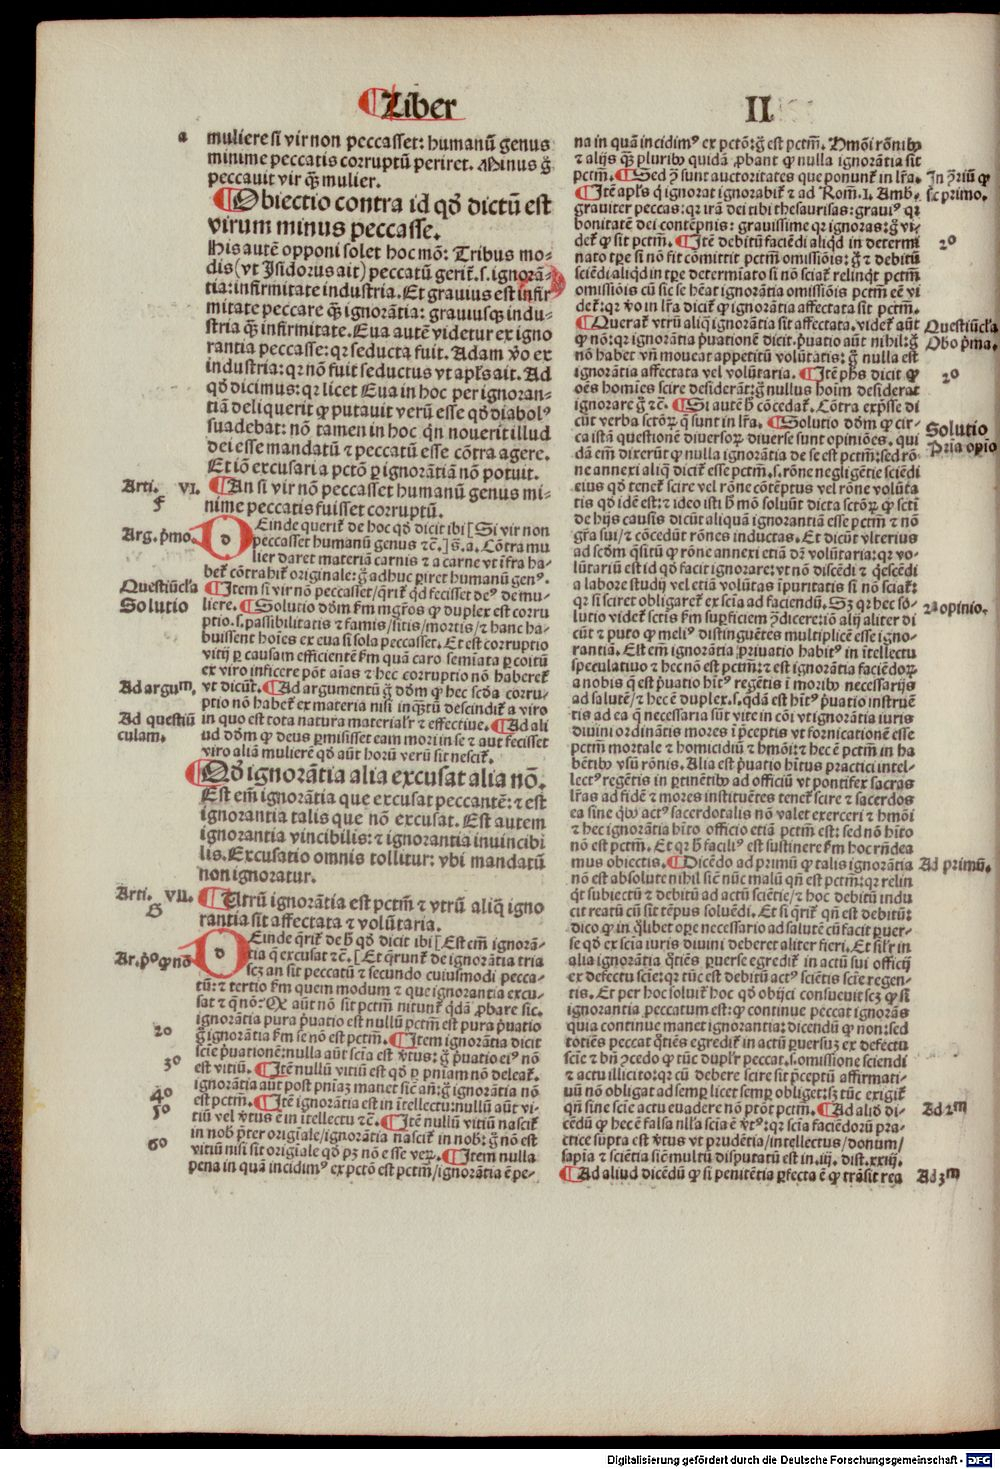 Liber II
a
muliere si vir non peccasset: humanū genus
minime peccatis corruptū periret. Minus g̃
peccauit vir q̃ mulier.
¶ Obiectio contra id qd̃ dictū est
virum minus peccasse.
His autē opponi solet hoc mō: Tribus mo-
dis (vt Isidorus ait) peccatū gerit̄. s. ignorā-
tia: infirmitate industria. Et grauius est infir
mitate peccare q̃ ignorātia: grauiusq; indu-
stria q̃ infirmitate. Eua autē videtur ex igno
rantia peccasse: qr seducta fuit. Adam v̄o ex
industria: qr non fuit seductus vt apl's ait. Ad
qd̃ dicimus: qr licet Eua in hoc per ignoran-
tiā deliquerit ꝙ putauit verū esse qd̃ diabol⁹
suadebat: nō tamen in hoc qn̄ nouerit illud
dei esse mandatū ⁊ peccatū esse cōtra agere.
Et iō excusari a pctō ꝑ ignorātiā nō potuit.
Arti. VI.
f
¶ An si vir nō peccasset humanū genus mi-
nime peccatis fuisset corruptū.
Arg. p̄mo.
d
Einde querit̄ de hoc qd̃ dicit ibi [Si vir non
peccasset humanū genus ⁊c̄.] s. a. Cōtra mu
lier daret materiā carnis ⁊ a carne vt īfra ha-
bet̄ cōtrahit̄ originale: g̃ adhuc ꝑiret humanū gen⁹.
Questiūcl'a
¶ Item si vir nō peccasset/q̄rit̄ qd̃ fecisset de⁹ de mu-
Solutio
liere. ¶ Solutio dōm ẜm mgr̄os ꝙ duplex est corru
ptio. s. passibilitatis ⁊ famis/sitis/mortis/⁊ hanc ha-
buissent hoīes ex eua si sola peccasset. Et est corruptio
vitij ꝑ causam efficientē ẜm quā caro semīata ꝑ coitū
ex viro inficere pōt aīas ⁊ hec corruptio nō haberet̄
Ad argum̄.
vt dicūt. ¶ Ad argumentū g̃ dōm ꝙ hec scd̄a corru-
ptio nō habet̄ ex materia nisi inq̄tū descindit̄ a viro
Ad questiū
culam.
in quo est tota natura material'r ⁊ effectiue. ¶ Ad ali
ud dōm ꝙ deus ꝑmisisset eam mori in se ⁊ aut fecisset
viro aliā mulierē qd̃ aūt horū verū sit nescit̄.
¶ Qd̃ ignorātia alia excusat alia nō.
Est em̄ ignorātia que excusat peccantē: ⁊ est
ignorantia talis que nō excusat. Est autem
ignorantia vincibilis: ⁊ ignorantia inuincibi
lis. Excusatio omnis tollitur: vbi mandatū
non ignoratur.
Arti. VII.
G
¶ Utrū ignorātia est pctm̄ ⁊ vtrū aliq̄ igno
rantia sit affectata ⁊ volūtaria.
Ar. p̄⁰ ꝙ nō
d
Einde q̄rit̄ de h̄ qd̃ dicit ibi [Est em̄ ignorā-
tia q̄ excusat ⁊c̄. [Et q̄runt̄ de ignorātia tria
scz an sit peccatū ⁊ secundo cuiusmodi pecca-
tū: ⁊ tertio ẜm quem modum ⁊ que ignorantia excu-
sat ⁊ q̄ nō: Qꝫ aūt nō sit pctm̄ nitunt̄ q̄dā ꝓbare sic.
ignorātia pura p̄uatio est nullū pctm̄ est pura p̄uatio
2⁰
g̃ ignorātia ẜm se nō est pctm̄. ¶ Item ignorātia dicit
scīe p̄uationē: nulla aūt scīa est v̄tus: g̃ p̄uatio ei⁹ nō
3⁰
est vitiū. ¶ Itē nullū vitiū est qd̃ ꝑ pn̄iam nō deleat̄.
ignorātia aūt post pn̄iaz manet siē añ: g̃ ignorātia nō
4⁰
est pctm̄. ¶ Itē ignorātia est in ītellectu: nullū aūt vi-
5⁰
tiū vel v̄tus ē in ītellectu ⁊c̄. ¶ Itē nullū vitiū nascit̄
in nob̄ p̄ter origīale/ignorātia nascit̄ in nob̄: g̃ nō est
6⁰
vitiū nisi sit origīale qd̃ pꝫ nō esse veꝝ. ¶ Item nulla
pena in quā incidim⁹ ex pctō est pctm̄/ignorātia ē pe-
na in quā incidim⁹ ex pctō: g̃ est pctm̄. Hmōi rōnibꝰ
⁊ alijs q̃ pluribꝰ quidā ꝓbant ꝙ nulla ignorātia sit
pctm̄. ¶ Sed ɔ̄ sunt auctoritates que ponunt̄ in lr̄a.
In ɔ̄riū ꝙ
sic primo.
¶ Itē apl's q̇ ignorat ignorabit̄ ⁊ ad Rom̄. 1. Amb.
grauiter peccas: qr irā dei tibi thesaurisas: graui⁹ qr
bonitatē dei contēpnis: grauissime qr ignoras: g̃ vi-
2⁰
det̄ ꝙ sit pctm̄. ¶ Itē debitū faciēdi aliqd̄ in determi
nato tp̄e si nō fit cōmittit pctm̄ omissiōis: g̃ ⁊ debitū
sciēdi aliqd̄ in tp̄e determīato si nō sciat̄ relinqt̄ pctm̄
omissiōis cū sic se hēat ignorātia omissiōis pctm̄ eē vi
det̄: qr v̄o in lr̄a dicit̄ ꝙ ignorātia affectata sit pctm̄.
Questiūcl'a
¶ Querat̄ vtrū aliq̄ ignorātia sit affectata. videt̄ aūt
Qd̃ ō p̄ma.
ꝙ nō: qr ignorātia p̄uationē dicit. p̄uatio aūt nihil: g̃
nō habet vn̄ moueat appetitū volūtatis: g̃ nulla est
2⁰
ignorātia affectata vel volūtaria. ¶ Itē ph̄s dicit ꝙ
oēs homīes scire desiderāt: g̃ nullus hoīm desiderat
ignorare g̃ ⁊c̄. ¶ Si autē h̄ cōcedat̄. Cōtra exp̄sse di
Solutio
cūt verba sctōꝝ q̄ sunt in lr̄a. ¶ Solutio dōm ꝙ cir-
P̄ria opīo
ca istā questionē diuersoꝝ diuerse sunt opiniōes. qui
dā em̄ dixerūt ꝙ nulla ignorātia de se est pctm̄: sed rō-
ne annexi aliq̄ dicit̄ esse pctm̄. s. rōne negligētie sciēdi
eius qd̃ tenet̄ scire vel rōne cōtēptus vel rōne volūta
tis qd̃ idē est: ⁊ ideo isti h̄ mō soluūt dicta sctōꝝ ꝙ scti
de hijs causīs dicūt aliquā ignorantiā esse pctm̄ ⁊ nō
gr̄a sui/⁊ cōcedūt rōnes inductas. Et dicūt vlterius
ad scd̄m q̄sitū ꝙ rōne annexi etiā dr̄ volūtaria: qr vo-
lūtariū est id qd̃ facit ignorare: vt nō discēdi ⁊ q̇escēdi
a labore studij vel etiā volūtas īpuritatis si nō sciat̄:
qr si sciret obligaret̄ ex scīa ad faciendū. Sꝫ qr hec so-
2ª opinio.
lutio videt̄ sctis ẜm superficiem ɔ̄dicere: iō alij aliter di
cūt ⁊ puto ꝙ meli⁹ distinguētes multiplicē esse igno-
rantiā. Est em̄ ignorātia p̄riuatio habit⁹ in ītellectu
speculatiuo ⁊ hec nō est pctm̄: ⁊ est ignorātia faciēdoꝝ
a nobis q̄ est p̄uatio hīt⁹ regētis ī moribꝰ necessarijs
ad salutē/⁊ hec ē duplex. s. q̄dā est hīt⁹ p̄uatio instruē
tis ad ea q̄ necessaria sūt vite in cōi vt ignorātia iuris
diuini ordinātis mores ī p̄ceptis vt fornicationē esse
pctm̄ mortale ⁊ homicidiū ⁊ hmōi: ⁊ hec ē pctm̄ in ha
bētibꝰ vsū rōnis. Alia est p̄uatio hītus practici intel-
lect⁹ regētis in ꝑtinētibꝰ ad officiū vt pontifex sacras
lr̄as ad fidē ⁊ mores instituētes tenet̄ scire ⁊ sacerdos
ea sine q̇bꝰ act⁹ sacerdotalis nō valet exerceri ⁊ hmōi
⁊ hec ignorātia hīto officio etiā pctm̄ est: sed nō hīto
nō est pctm̄. Et qr h̄ facili⁹ est sustinere ẜm hoc rn̄dea
Ad primū.
mus obiectis. ¶ Dicēdo ad primū ꝙ talis ignorātia
nō est absolute nihil siē nūc malū qn̄ est pctm̄: qr relin
qt̄ subiectū ⁊ debitū ad actū sciētie/⁊ hoc debitū indu
cit reatū cū sit tēpus soluēdi. Et si q̄rit̄ qn̄ est debitū:
dico ꝙ in q̄libet oꝑe necessario ad salutē cū facit ꝑuer-
se qd̃ ex scīa iuris diuini deberet aliter fieri. Et sil'r in
alia ignorātia q̄tiēs ꝑuerse egredit̄ in actū sui officij
ex defectu scīe: qr tūc est debitū act⁹ sciētis scīe regen-
tis. Et per hoc soluit̄ hoc qd̃ obijci consueuit scꝫ ꝙ si
ignorantia peccatum est: ꝙ continue peccat ignorās
quia continue manet ignorantia: dicendū ꝙ non: sed
totiēs peccat q̄tiēs egredit̄ in actū ꝑuersuꝫ ex defectu
scīe ⁊ bn̄ ɔ̄cedo ꝙ tūc dupl'r peccat. s. omissione sciendi
⁊ actu illicito: qr cū debere scire sit p̄ceptū affirmati-
uū nō obligat ad semꝑ licet semꝑ obliget: sꝫ tūc exigit̄
Ad 2m̄
qn̄ sine scīe actu euadere nō pōt pctm̄. ¶ Ad aliō di-
cēdū ꝙ hec ē falsa nl'la scīa ē v̄t⁹: qr scīa faciēdorū pra-
ctice sūpta est v̄tus vt prudētia/intellectus/donum/
sapīa ⁊ sciētia siē multū disputatū est in. iij. dist. xxiij.
Ad 3m̄
¶ Ad aliud dicēdū ꝙ si penitētia ꝑfecta ē ꝙ trāsit rea
Digitalisierung gefördert durch die Deutsche Forschungsgemeinschaft - DFG